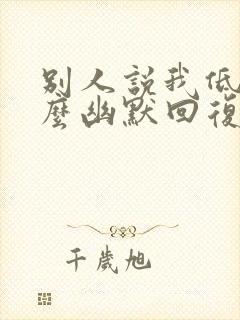 別人説我低
麽幽默回復
千歲旭